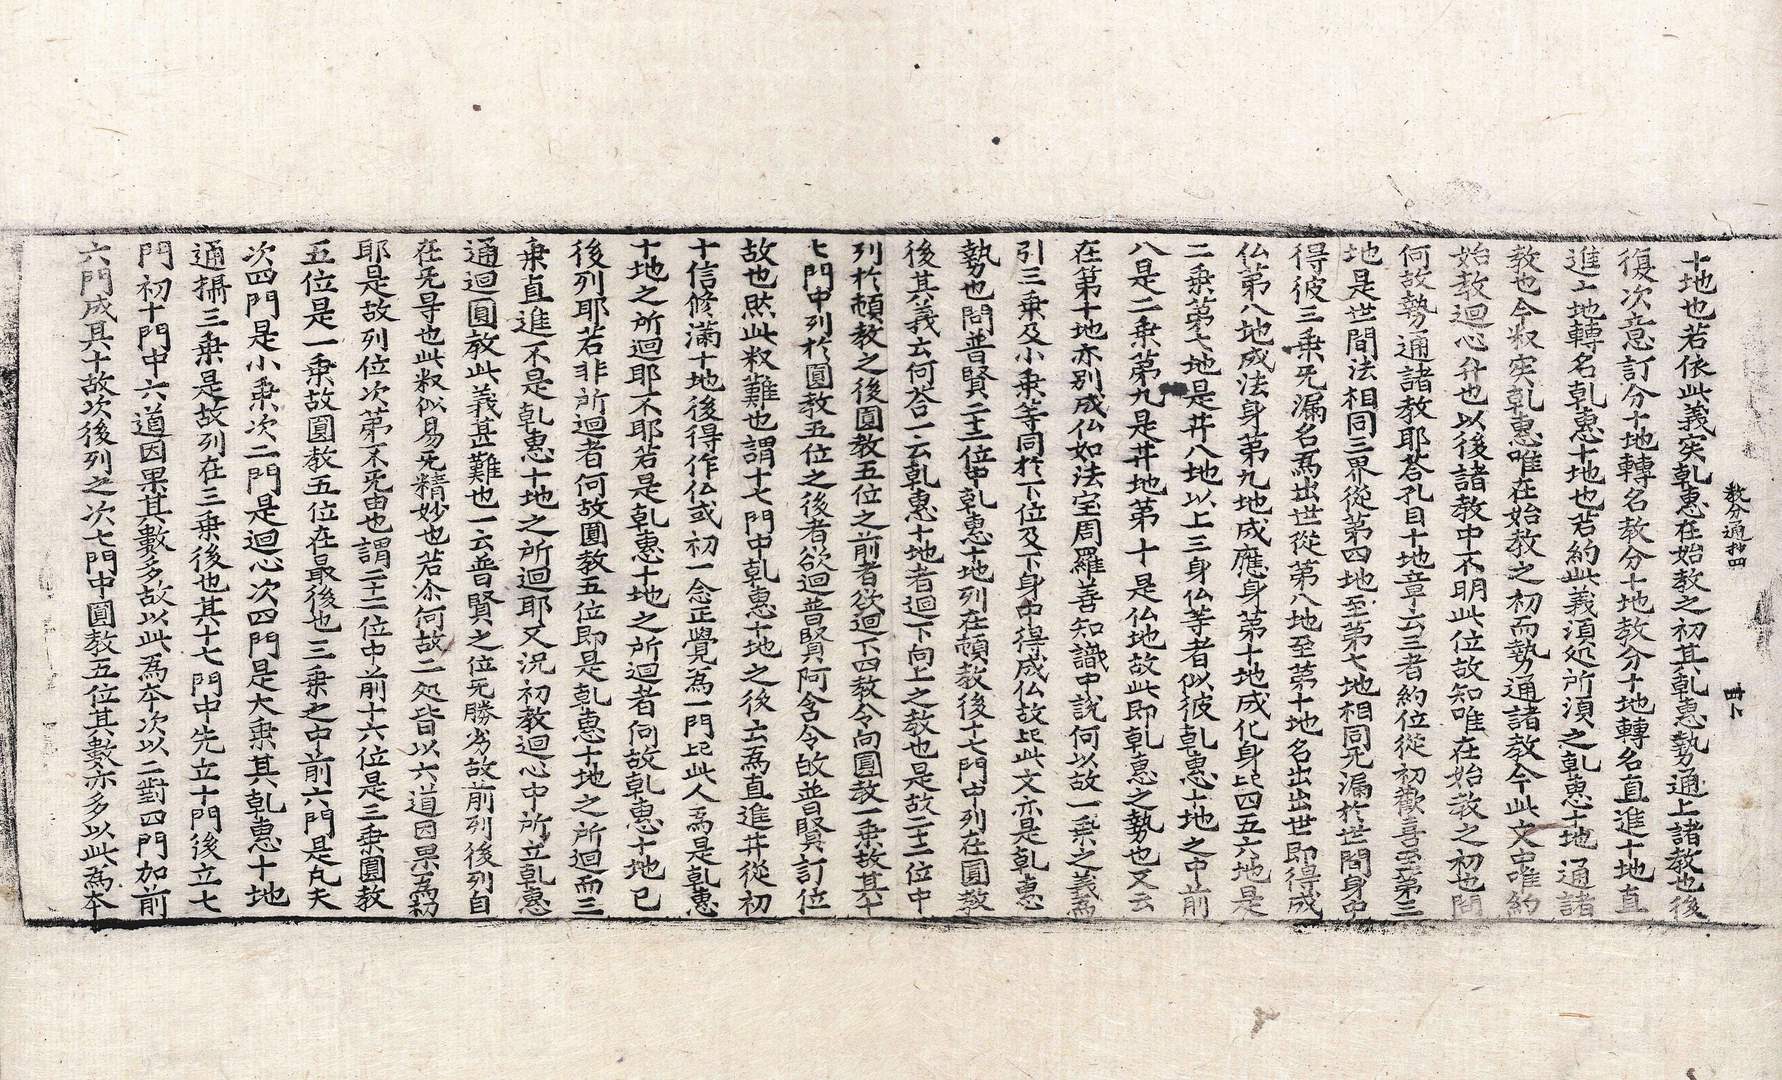 教分通抄四
十地也若依此義実乹惠在始教之初其乹惠勢通上諸教也後
復次意訂分十地轉名教分十地教分十地轉名直進十地直
進十地轉名乹惠十地也若約此義須処所須之乹惠十地通諸
教也今权実乹惠唯在始教之初而勢通諸教今此文中唯約
始教迴心升也以後諸教中不明此位故知唯在始教之初也問
何故勢通諸教耶荅孔目十地章云三者約位從初歡喜至第三
地是世間法相同三界從第四地至第七地相同旡漏於世間身中
得彼三乗旡漏名為出世從第八地至第十地名出出世即得成
仏第八地成法身第九地成應身第十地成化身比四五六地是
二乗第七地是井八地以上三身仏等者似彼乹惠十地之中前
八是二乗第九是井地第十是仏地故此即乹惠之勢也又云
在第十地亦別成仏如法宝周羅善知識中說何以故一乗之義為
引三乗及小乗等同於下位及下身中得成仏故比此文亦是乹惠
勢也問普賢二十二位中乹惠十地列在頓教後十七門中列在圓教
後其義云何荅一云乹惠十地者迴下向上之教也是故二十二位中
列於頓教之後圓教五位之前者欲迴下四教令向圓教一乗故其十
七門中列於圓教五位之後者欲迴普賢阿含令故普賢訂位
故也然此叙難也謂十七門中乹惠十地之後云為直進井從初
十信修滿十地後得作仏或初一念正覺為一門比此人為是乹惠
十地之所迴耶不耶若是乹惠十地之所迴者何故乹惠十地已
後列耶若非所迴者何故圓教五位即是乹惠十地之所迴而三
乗直進不是乹惠十地之所迴耶又況初教迴心中所立乹惠
通迴圓教此義甚難也一云普賢之位旡勝劣故前列後列自
在旡导也此叙似易旡精妙也若尒何故二処皆以六道因果為初
耶是故列位次第不旡由也謂二十二位中前十六位是三乗圓教
五位是一乗故圓教五位在最後也三乗之中前六門是凢夫
次四門是小乗次二門是迴心次四門是大乗其乹惠十地
通攝三乗是故列在三乗後也其十七門中先立十門後立七
門初十門中六道因果其數多故以此為本次以二對四門加前
六門成其十故次後列之次七門中圓教五位其數亦多以此為本